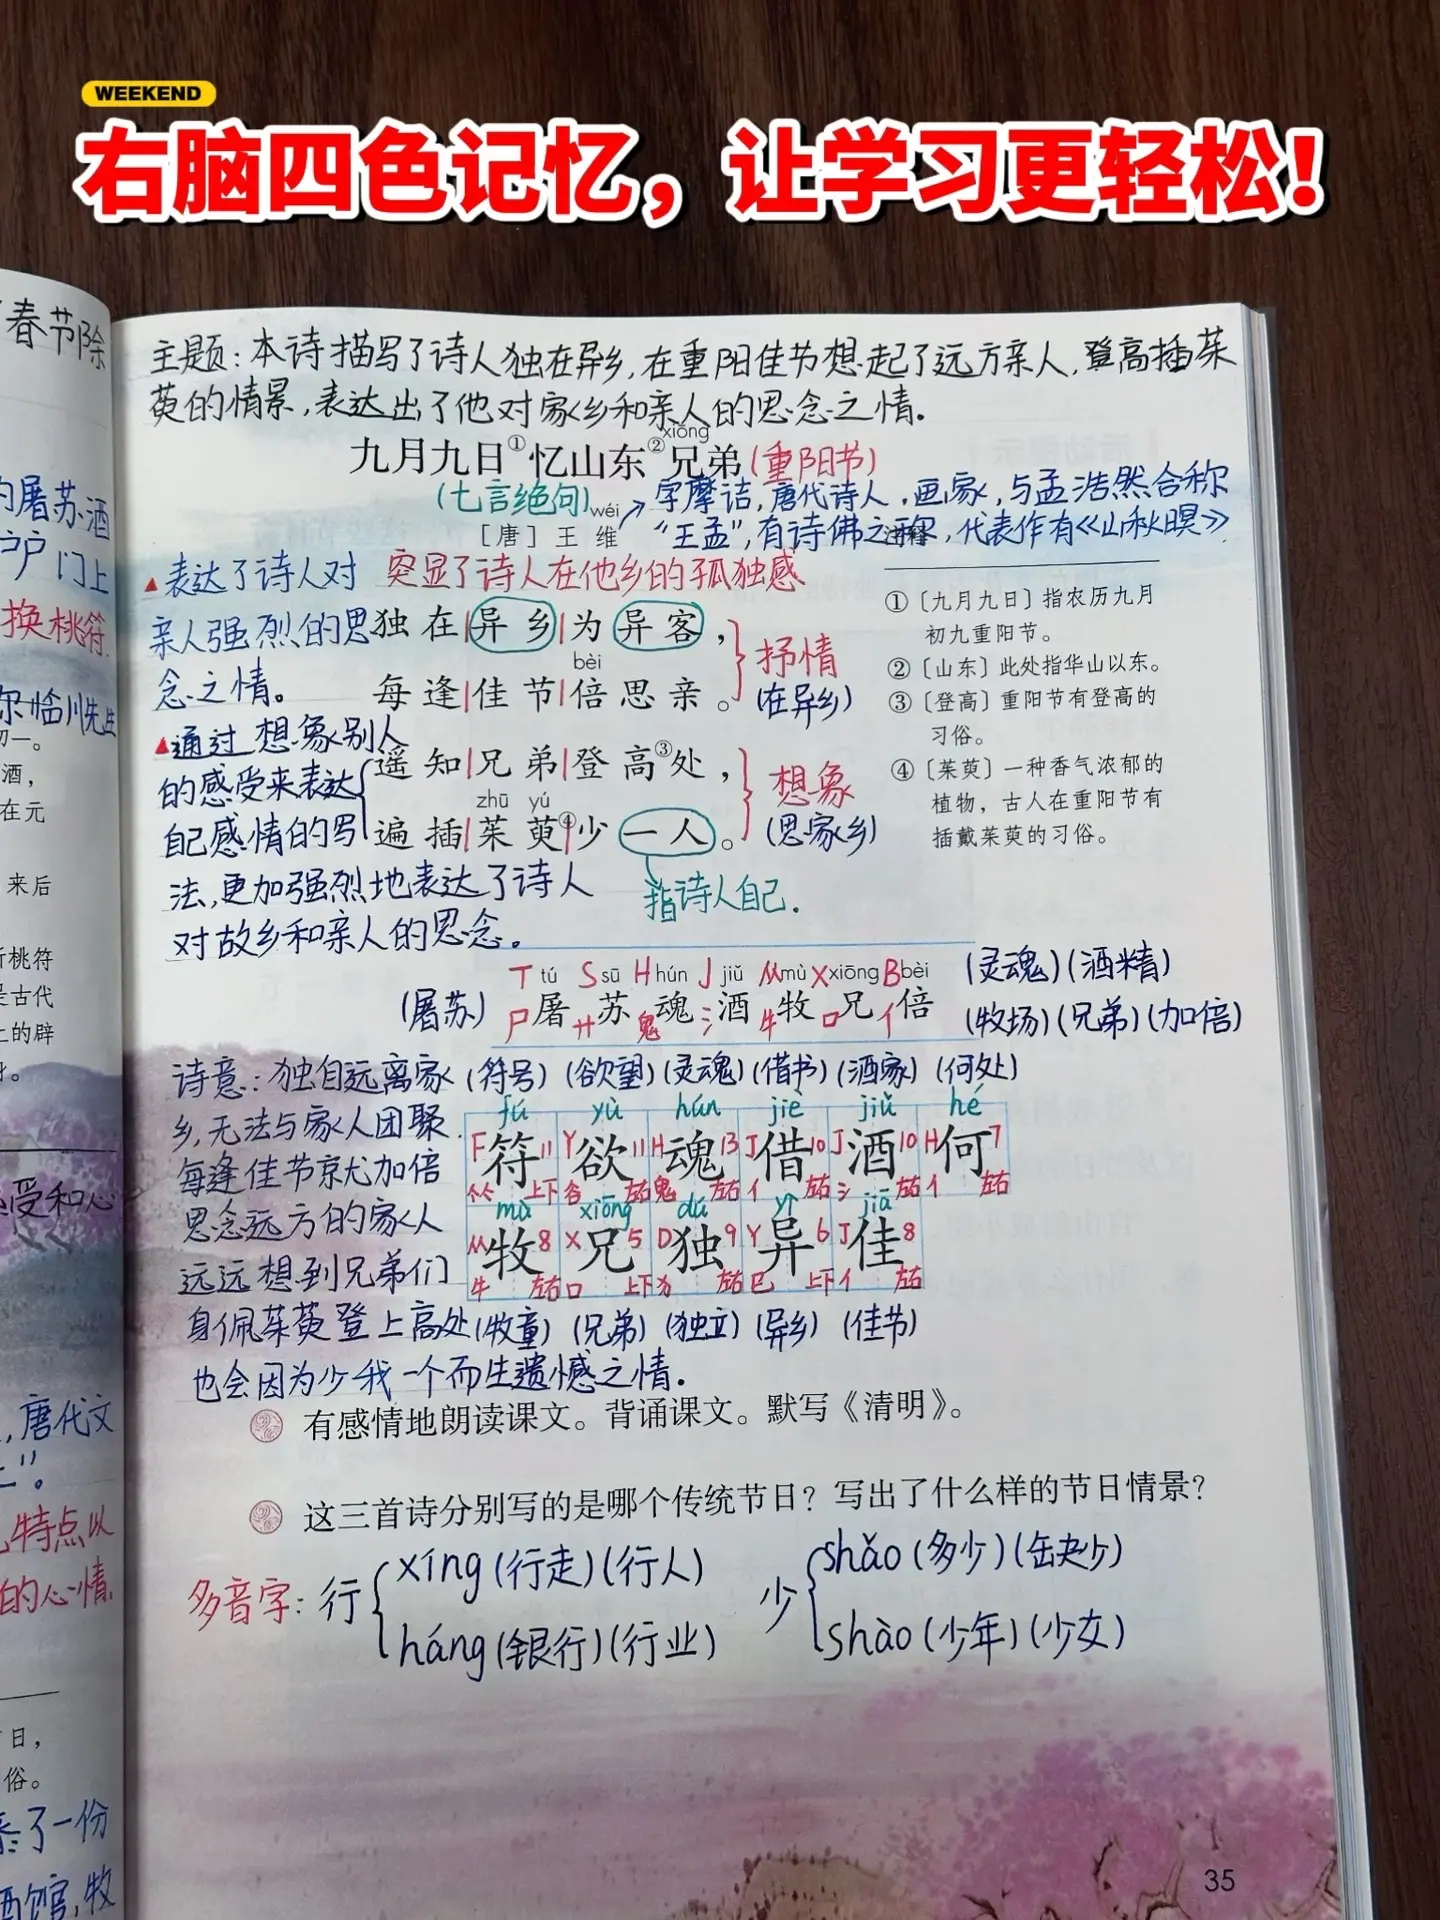 WEEKEND
右脑四色记忆，让学习更轻松！
春节除
的屠苏酒
户户门上
换桃符.
尔临川先生
初一。
酒，
在元
来后
新桃符
是古代
上的辟
身。
感受和心
，唐代文
特点以
的心情.
日，
俗。
来了一份
酒馆,牧
主题:本诗描写了诗人独在异乡,在重阳佳节想起了远方亲人,登高插茱
萸的情景,表达出了他对家乡和亲人的思念之情.
xiōng
九月九日①忆山东②兄弟(重阳节)
(七言绝句)
wéi
［唐］王 维
字摩诘,唐代诗人,画家,与孟浩然合称
“王孟”,有诗佛之称,代表作有《山秋暝》
▲表达了诗人对
亲人强烈的思
念之情。
突显了诗人在他乡的孤独感
独在|异乡|为异客，
bèi
每逢|佳节|倍思亲。
抒情
(在异乡)
▲通过想象别人
的感受来表达
自己感情的写
法,更加强烈地表达了诗人
对故乡和亲人的思念。
遥知|兄弟|登高③处，
zhū yú
遍插|茱萸④|少一人。
想象
(思家乡)
指诗人自己.
①〔九月九日〕指农历九月
初九重阳节。
②〔山东〕此处指华山以东。
③〔登高〕重阳节有登高的
习俗。
④〔茱萸〕一种香气浓郁的
植物，古人在重阳节有
插戴茱萸的习俗。
T tú S sū H hún J jiǔ M mù X xiōng B bèi
(灵魂)(酒精)
(屠苏) 尸屠 艹苏 鬼魂 氵酒 牛牧 口兄 亻倍
(牧场)(兄弟)(加倍)
诗意:独自远离家
乡,无法与家人团聚.
每逢佳节就加倍
思念远方的家人
远远想到兄弟们
身佩茱萸登上高处
也会因为少我一个而生遗憾之情.
(符号) (欲望) (灵魂) (借书) (酒家) (何处)
fú yù hún jiè jiǔ hé
F符11 Y欲11 H魂13 J借10 J酒10 H何7
上下 谷 左右 鬼 左右 亻 左右 氵 左右 亻 左右
mù xiōng dú yì jiā
M牧8 X兄5 D独9 Y异6 J佳8
牛 左右 口 上下 犭 左右 巳 上下 亻 左右
(牧童) (兄弟) (独立) (异乡) (佳节)
有感情地朗读课文。背诵课文。默写《清明》。
这三首诗分别写的是哪个传统节日？写出了什么样的节日情景？
多音字:行
xíng(行走)(行人)
háng(银行)(行业)
少
shǎo(多少)(缺少)
shào(少年)(少女)
35